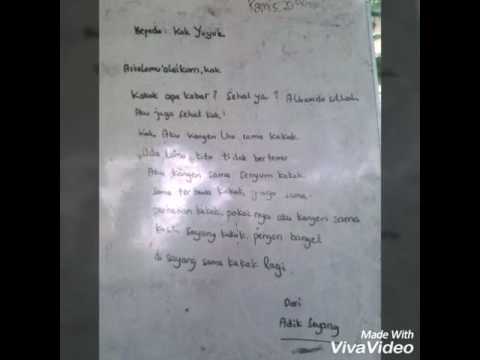 Kepada : Kak Yuyuk
Assalamu'alaikum, kak
Kakak apa kabar ? Sehat ya ? Alhamdulillah
Aku juga sehat kak!
Kak Aku kangen sama kakak
Udah lama kita tidak bertemu
Aku kangen sama senyum kakak
sama tertawa kakak, juga sama
kakak, pokoknya aku kangen sama
kasih sayang kakak, pengen banget
di sayang sama kakak lagi
Dari
Adik Sayang
Made With
VivaVideo